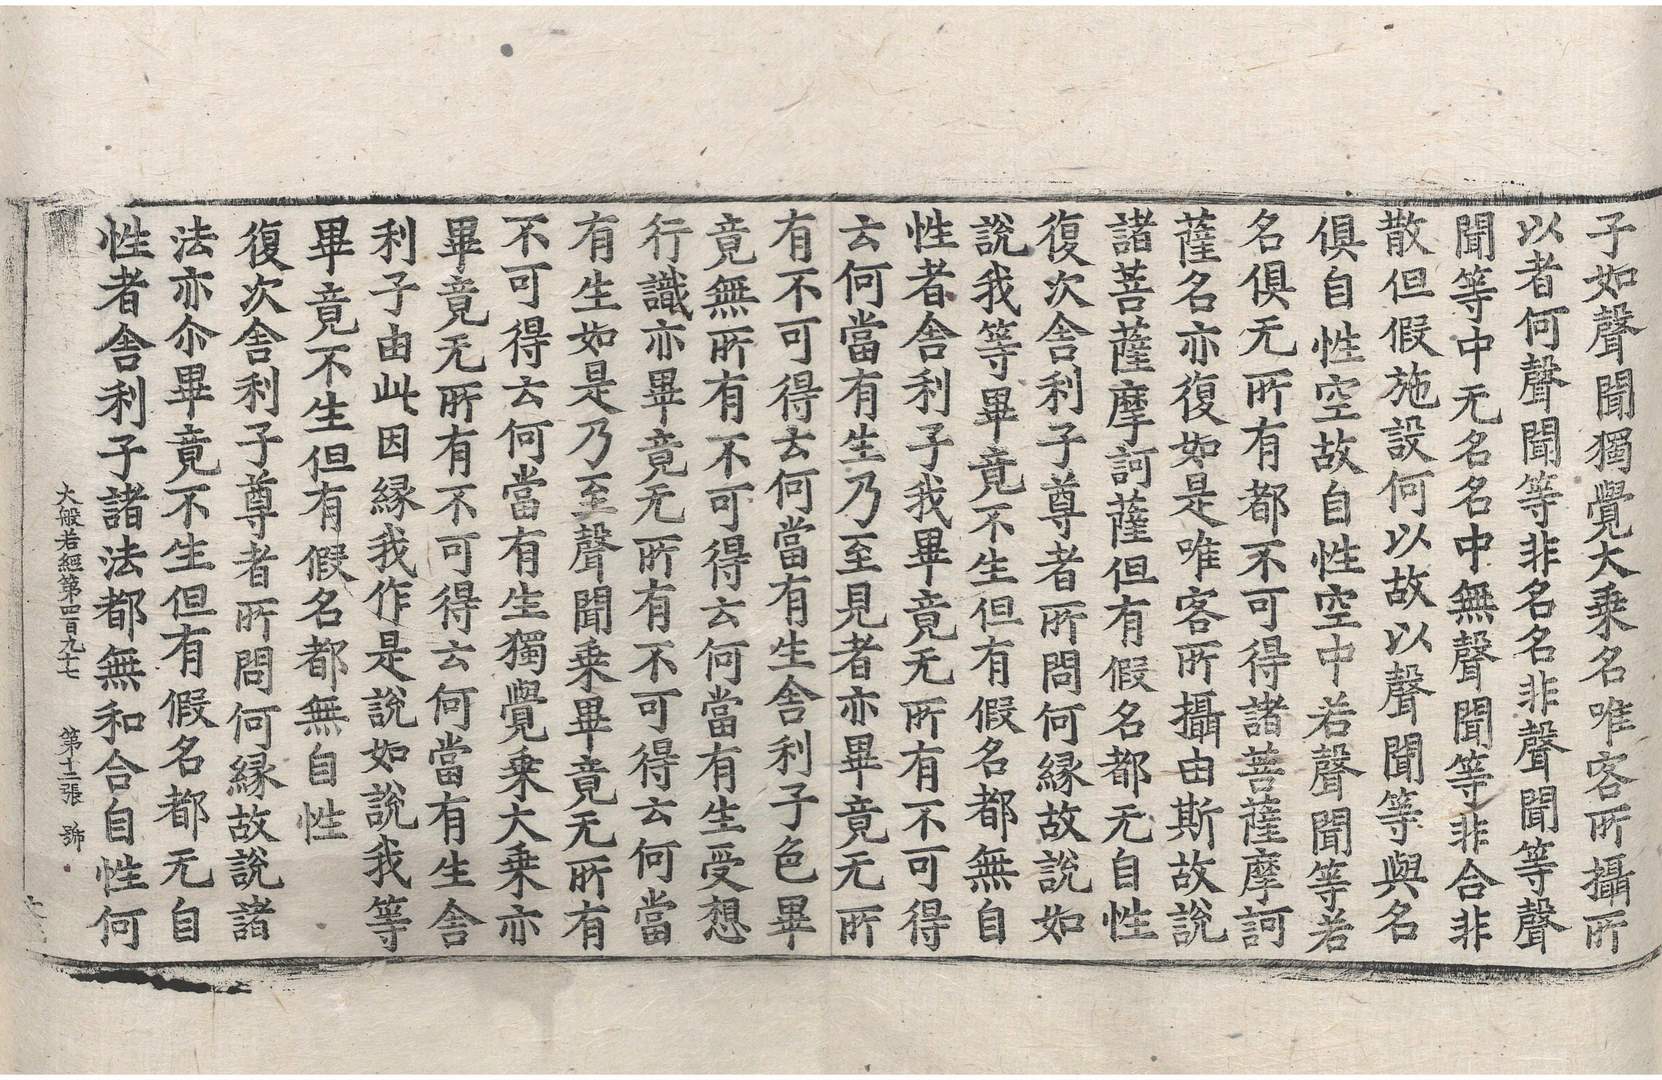 子如聲聞獨覺大乘名唯客所攝所
以者何聲聞等非名名非聲聞等聲
聞等中无名名中無聲聞等非合非
散但假施設何以故以聲聞等與名
俱自性空故自性空中若聲聞等若
名俱无所有都不可得諸菩薩摩訶
薩名亦復如是唯客所攝由斯故說
諸菩薩摩訶薩但有假名都无自性
復次舍利子尊者所問何緣故說如
說我等畢竟不生但有假名都無自
性者舍利子我畢竟无所有不可得
云何當有生乃至見者亦畢竟无所
有不可得云何當有生舍利子色畢
竟無所有不可得云何當有生受想
行識亦畢竟无所有不可得云何當
有生如是乃至聲聞乘畢竟无所有
不可得云何當有生獨覺乘大乘亦
畢竟无所有不可得云何當有生舍
利子由此因緣我作是說如說我等
畢竟不生但有假名都無自性
復次舍利子尊者所問何緣故說諸
法亦尒畢竟不生但有假名都无自
性者舍利子諸法都無和合自性何
大般若經第四百九七 第十二張 號